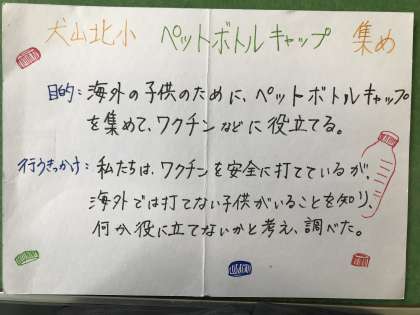 犬山北小 ペットボトルキャップ 集め
目的:海外の子供のために、ペットボトルキャップ
を集めて、ワクチンなどに役立てる。
行うきっかけ:私たちは、ワクチンを安全に打てているが、
海外では打てない子供がいることを知り、
何か役に立てないかと考え、調べた。